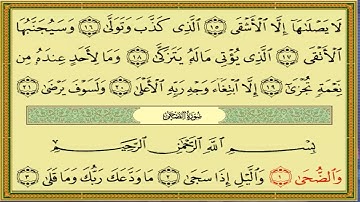 لَا يَصْلَىٰهَا إِلَّا الْأَشْقَى ١٥ الَّذِي كَذَّبَ وَتَوَلَّىٰ ١٦ وَسَيُجَنَّبُهَا
الْأَتْقَى ١٧ الَّذِي يُؤْتِي مَالَهُ يَتَزَكَّىٰ ١٨ وَمَا لِأَحَدٍ عِندَهُ مِن
نِّعْمَةٍ تُجْزَىٰ ١٩ إِلَّا ابْتِغَاءَ وَجْهِ رَبِّهِ الْأَعْلَىٰ ٢٠ وَلَسَوْفَ يَرْضَىٰ ٢١
سُورَةُ الضُّحَى
بِسْمِ اللَّهِ الرَّحْمَٰنِ الرَّحِيمِ
وَالضُّحَىٰ ١ وَاللَّيْلِ إِذَا سَجَىٰ ٢ مَا وَدَّعَكَ رَبُّكَ وَمَا قَلَىٰ ٣